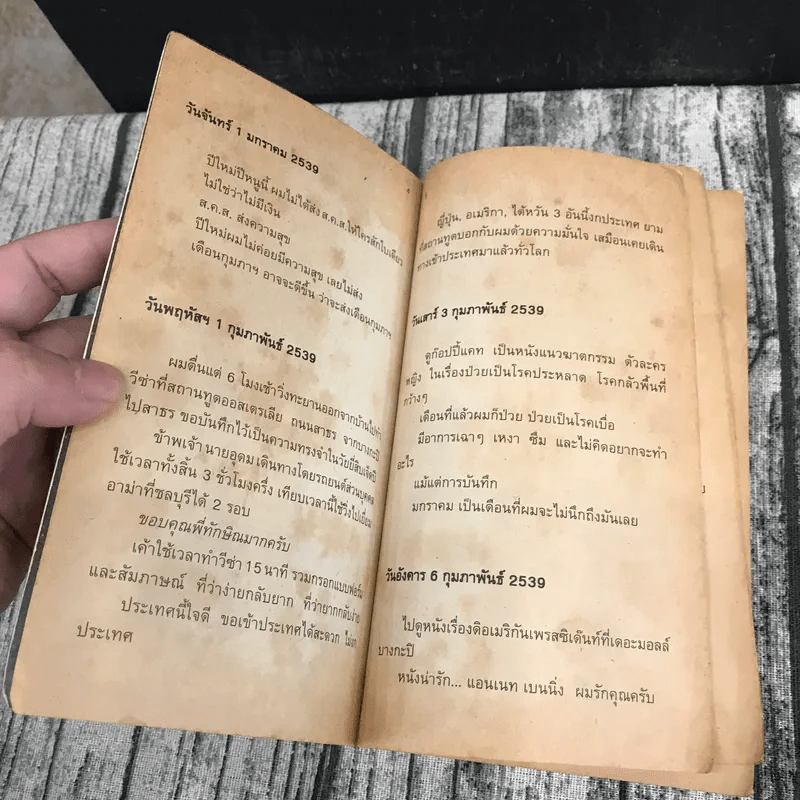 วันจันทร์ 1 มกราคม 2539
ปีใหม่ปีหนูนี้ ผมไม่ได้ส่ง ส.ค.ส.ให้ใครสักใบเดียว
ไม่ใช่ว่าไม่มีเงิน
ส.ค.ส. ส่งความสุข
ปีใหม่ผมไม่ค่อยมีความสุข เลยไม่ส่ง
เดือนกุมภาฯ อาจจะดีขึ้น ว่าจะส่งเดือนกุมภาฯ
วันพฤหัสฯ 1 กุมภาพันธ์ 2539
ผมตื่นแต่ 6 โมงเช้าวิ่งทะยานออกจากบ้านไปทำ
วีซ่าที่สถานทูตออสเตรเลีย ถนนสาธร จากบางกะปิ
ไปสาธร ขอบันทึกไว้เป็นความทรงจำในวัยยี่สิบเจ็ดปี
ข้าพเจ้านายอุดม เดินทางโดยรถยนต์ส่วนบุคคล
ใช้เวลาทั้งสิ้น 3 ชั่วโมงครึ่ง เทียบเวลานี้ใช้วิ่งไปเยี่ยม
อาม่าที่ชลบุรีได้ 2 รอบ
ขอบคุณพี่ทักษิณมากครับ
เค้าใช้เวลาทำวีซ่า 15 นาที รวมกรอกแบบฟอร์ม
และสัมภาษณ์ ที่ว่าง่ายกลับยาก ที่ว่ายากกลับง่าย
ประเทศนี้ใจดี ขอเข้าประเทศได้สะดวก ไม่งก
ประเทศ
ญี่ปุ่น, อเมริกา, ไต้หวัน 3 อันนี้งกประเทศ ยาม
ที่สถานทูตบอกกับผมด้วยความมั่นใจ เสมือนเคยเดิน
ทางเข้าประเทศมาแล้วทั่วโลก
วันเสาร์ 3 กุมภาพันธ์ 2539
ดูก๊อปปี้แคท เป็นหนังแนวฆาตกรรม ตัวละคร
หญิง ในเรื่องป่วยเป็นโรคประหลาด โรคกลัวพื้นที่
กว้างๆ
เดือนที่แล้วผมก็ป่วย ป่วยเป็นโรคเบื่อ
มีอาการเฉาๆ เหงา ซึม และไม่คิดอยากจะทำ
อะไร
แม้แต่การบันทึก
มกราคม เป็นเดือนที่ผมจะไม่นึกถึงมันเลย
วันอังคาร 6 กุมภาพันธ์ 2539
ไปดูหนังเรื่องดิอเมริกันเพรสซิเด้นท์ที่เดอะมอลล์
บางกะปิ
หนังน่ารัก... แอนเนท เบนนิ่ง ผมรักคุณครับ